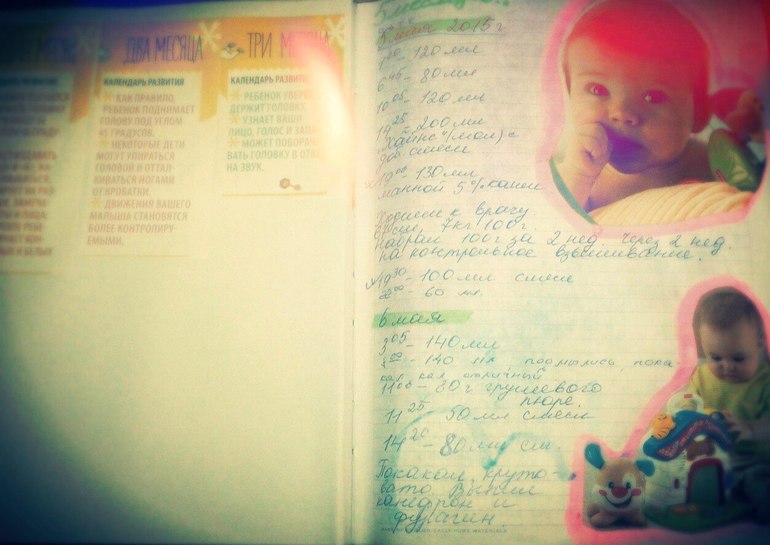 ДВА МЕСЯЦА
КАЛЕНДАРЬ РАЗВИТИЯ
КАК ПРАВИЛО,
РЕБЕНОК ПОДНИМАЕТ
ГОЛОВУ ПОД УГЛОМ
45 ГРАДУСОВ.
НЕКОТОРЫЕ ДЕТИ
МОГУТ УПИРАТЬСЯ
ГОЛОВОЙ И ОТТАЛ-
КИВАТЬСЯ НОГАМИ
ОТ КРОВАТКИ.
ДВИЖЕНИЯ ВАШЕГО
МАЛЫША СТАНОВЯТСЯ
БОЛЕЕ КОНТРОЛИРУ-
ЕМЫМИ.
ТРИ МЕСЯЦА
КАЛЕНДАРЬ РАЗВИТ
РЕБЕНОК УВЕР
ДЕРЖИТ ГОЛОВКУ.
УЗНАЕТ ВАШЕ
ЛИЦО, ГОЛОС И ЗАПА
МОЖЕТ ПОВОРАЧ
ВАТЬ ГОЛОВКУ В ОТВ
НА ЗВУК.
5 мая 2015 г
120 мл
6 45 - 80 мл
10 05 - 120 мл
14 25 - 200 мл
"Хайнс" (мол) с
смеси
19 00 - 130 мл
манной 5% каши
к врачу
7кг 100г.
Набрал 100г за 2 нед. Через 2 нед.
на контрольное взвешивание.
19 30 - 100 мл смеси
- 60 мл.
6 мая
3 05 - 140 мл
- 140 мл подмылись, пока-
кал как отличный
11 00 - 80 г грушевого
пюре.
11 25 - 50 мл смеси
14 20 - 80 мл см.
Покакал, круто-
вато. Выпил
канефрон и
фурагин.